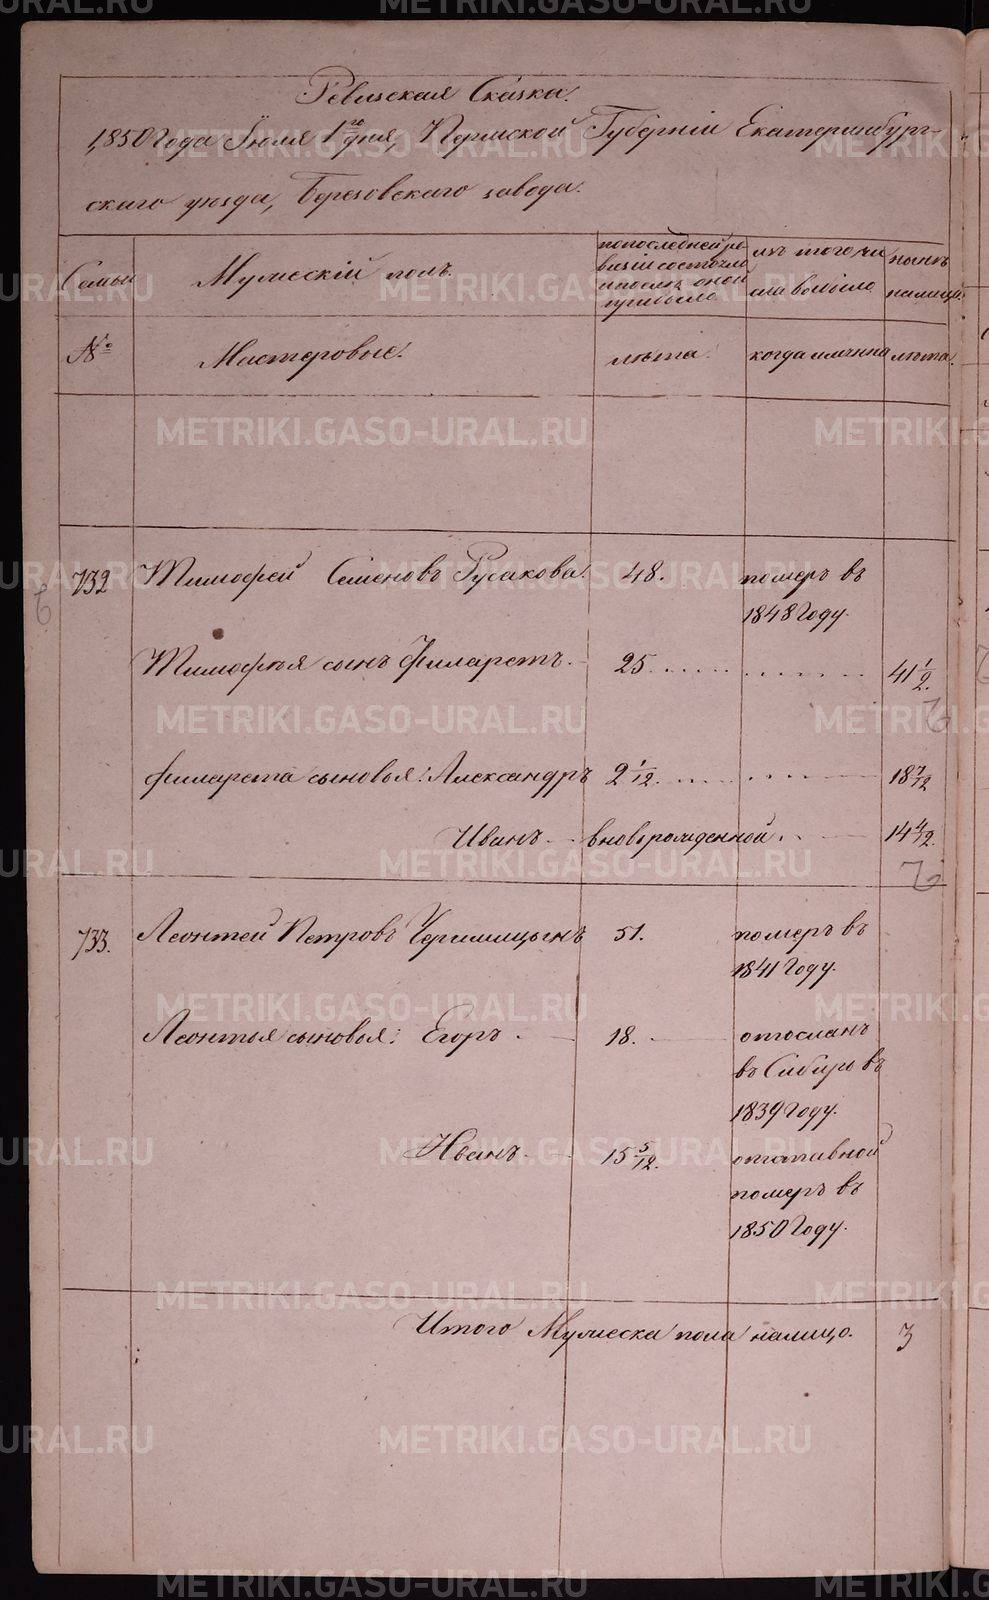 Ревизская Сказка.
1850 Года Июля 1го дня, Пермской Губерніи Екатеринбург-
скаго уезда, Березовскаго завода.
Семьи
Мужескій полъ.
по последней ре-
визіи состояло
и после оной
прибыло
изъ того чи
сла выбыло
ныне
налицо.
№
Мастеровые.
лѣта.
когда именно
лѣта.
732
Тимофей Семеновъ Русакова.
48.
померъ въ
1848 Году.
Тимофѣя сынъ Филаретъ.
25
41 1/2.
Филарета сыновья: Александръ
2 1/12.
18 7/12
Иванъ
вновьрожденной.
14 4/12.
733.
Леонтей Петровъ Черемицынъ
51.
померъ въ
1841 Году.
Леонтья сыновья: Егоръ
18.
отосланъ
въ Сибирь въ
1839 Году.
Иванъ
15 5/12.
отставной
померъ въ
1850 Году.
Итого Мужеска пола налицо.
3
METRIKI.GASO-URAL.RU